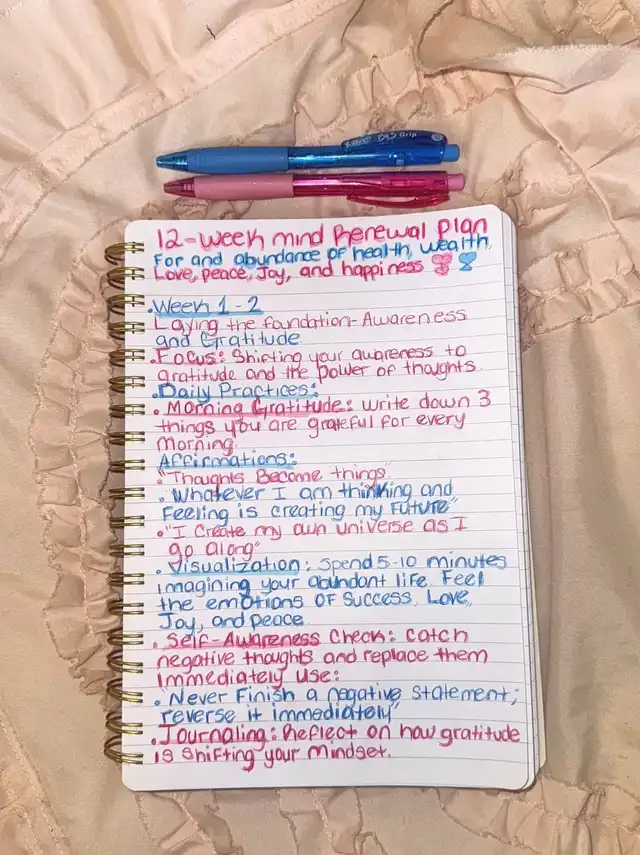 12-week mind Renewal Plan
For and abundance of health, wealth,
Love, peace, Joy, and happiness
.Week 1-2
Laying the foundation-Awareness
and Gratitude
.Focus: Shifting your awareness to
gratitude and the power of thoughts.
.Daily Practices:
. Morning Gratitude: write down 3
things you are grateful for every
morning.
Affirmations:
."Thoughts Become things"
. Whatever I am thinking and
Feeling is creating my future"
."I create my own universe as I
go along"
. Visualization: Spend 5-10 minutes
imagining your abundant life. Feel
the emotions of success, Love,
Joy, and peace
. Self-Awareness Check: catch
negative thoughts and replace them
immediately use:
. "Never Finish a negative statement;
reverse it immediately"
.Journaling: Reflect on how gratitude
is shifting your mindset.